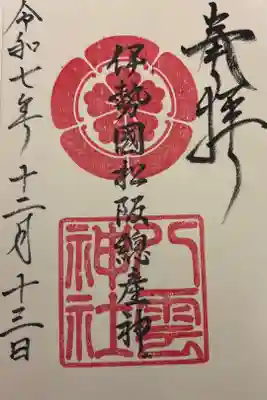 奉拝
伊勢國松阪總産神
八雲
神社
令和七年 十二月 十三日